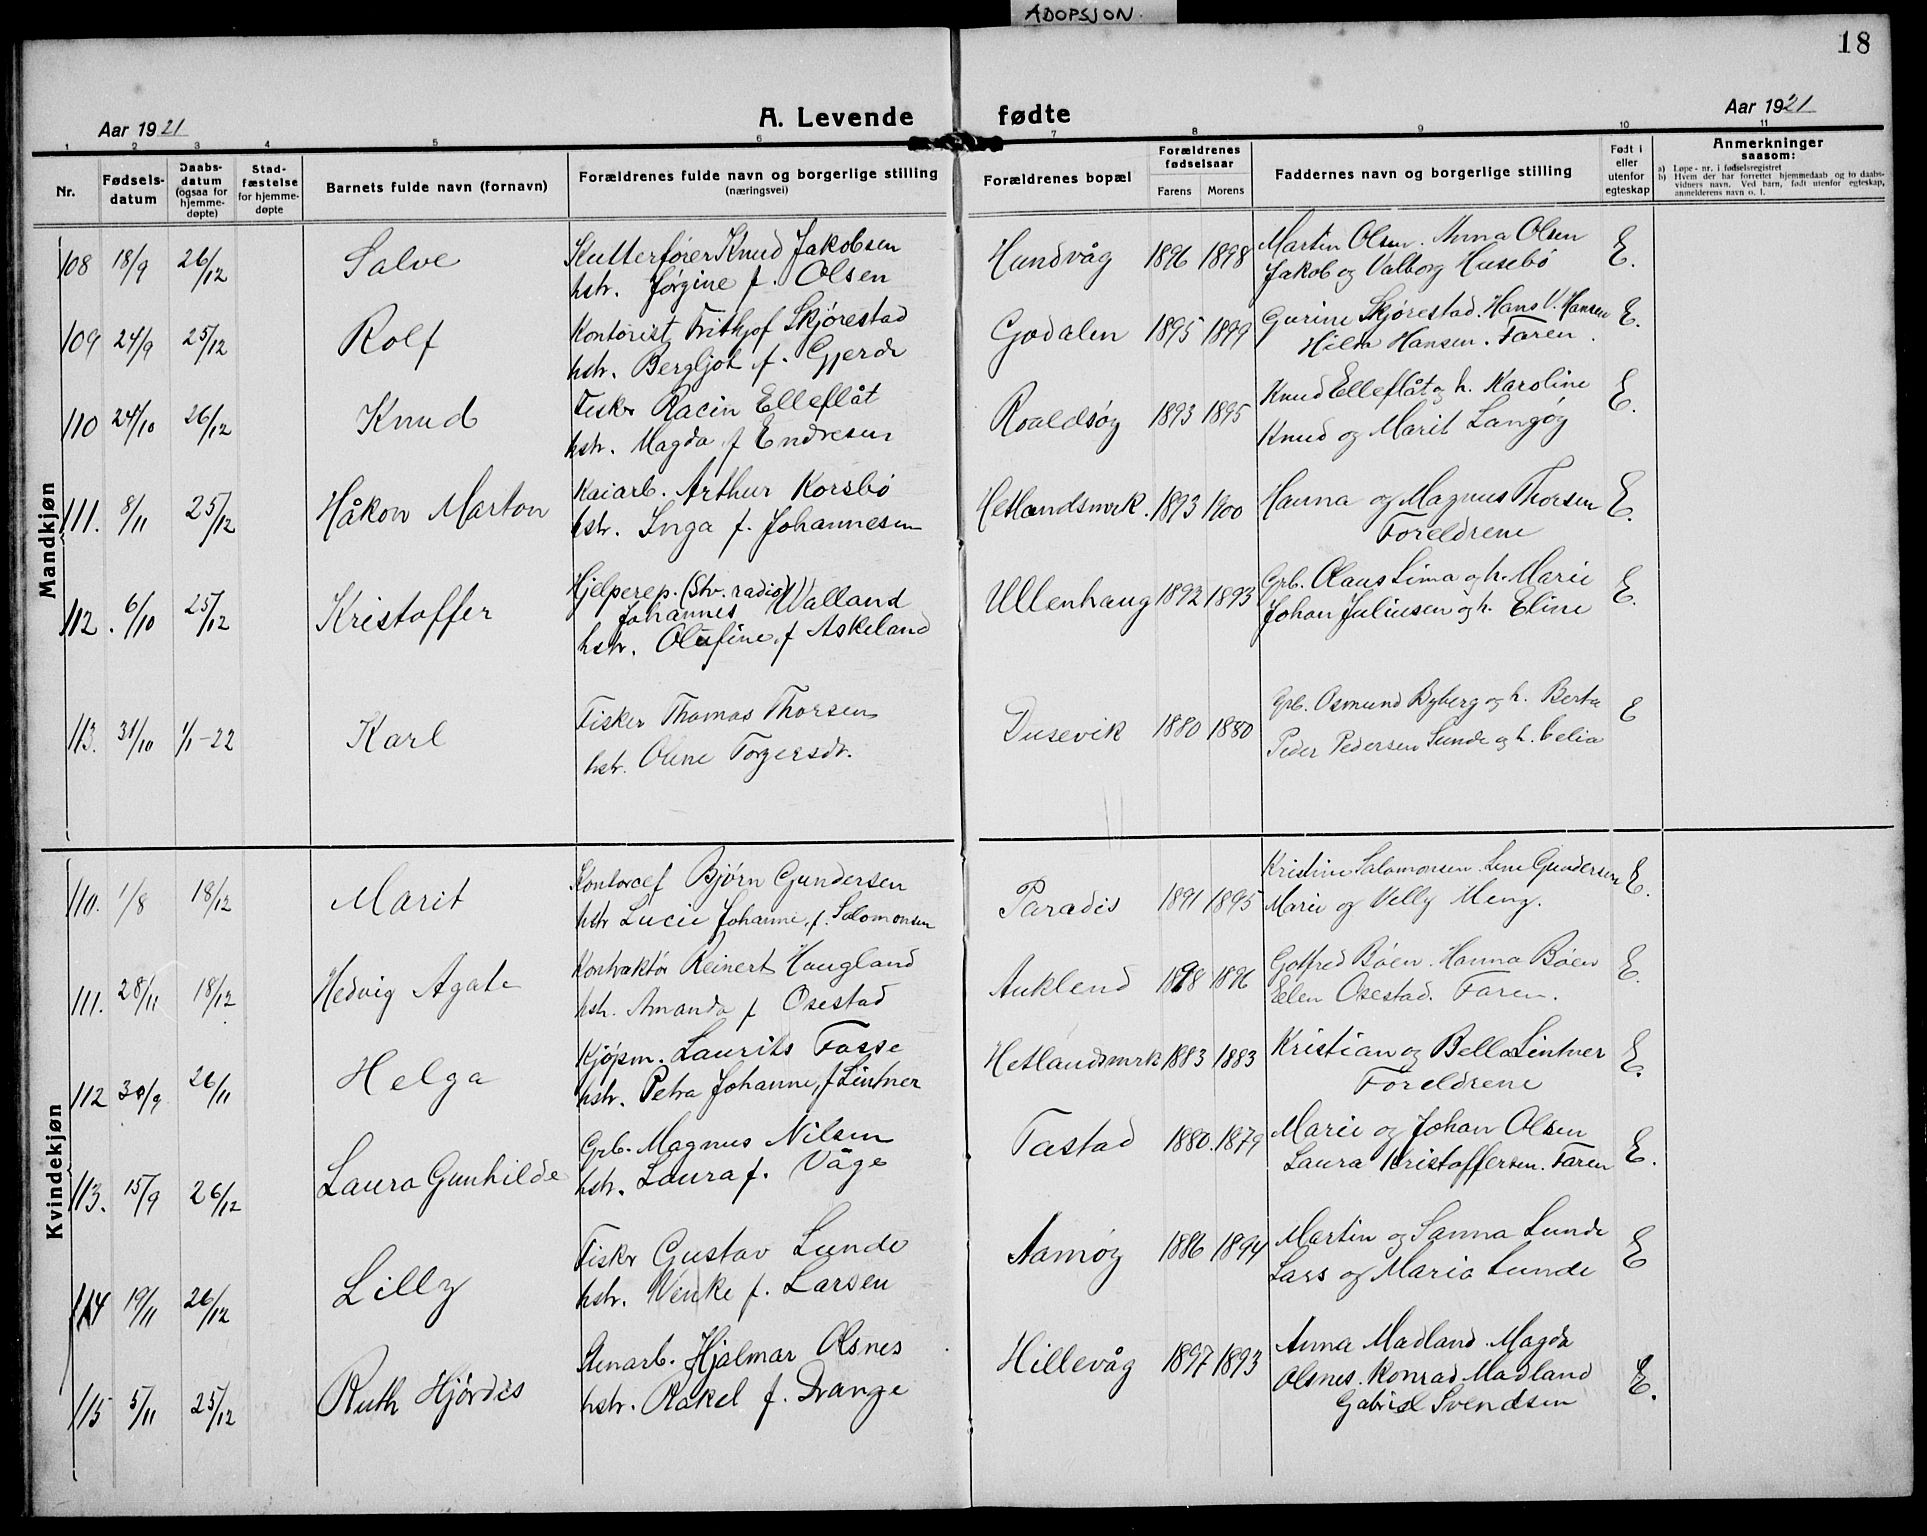 ADOPSJON.
18
Aar 1921
A. Levende fødte
Aar 1921
1 2 3 4 5 6 7 8 9 10 11
Nr.
Fødsels-
datum
Daabs-
datum
(ogsaa for
hjemme-
døpte)
Stad-
fæstelse
for hjemme-
døpte
Barnets fulde navn (fornavn)
Forældrenes fulde navn og borgerlige stilling
(næringsvei)
Forældrenes bopæl
Forældrenes
fødselsaar
Farens Morens
Faddernes navn og borgerlige stilling
Født i
eller
utenfor
egteskap
Anmerkninger
saasom:
a) Løpe-nr. i fødselsregistret
b) Hvem der har forrettet hjemmedaab og to daabs-
vidners navn. Ved barn, født utenfor egteskap,
anmelderens navn o. l.
Mandkjøn
108 18/9 26/12 Salve Kutterfører Knud Jakobsen Hundvåg 1896 1898 Martin Olsen. Anna Olsen E.
hstr. Jørgine f. Olsen Jakob og Valborg Husebø
109 24/9 25/12 Rolf Kontorist Frithjof Skjørestad Godalen 1895 1899 Gurine Skjørestad. Hans V. Hansen E.
hstr. Bergljot f. Gjerde Hilda Hansen. Faren.
110 24/10 26/12 Knud Fisker Racin Elleflåt Roaldsøy 1893 1895 Knud Elleflåt og h. Karoline E.
hstr. Magda f Endresen Knud og Marit Langøy
111. 8/11 25/12 Håkon Marton Kaiarb. Arthur Korsbø Hetlandsmrk. 1893 1900 Hanna og Magnus Thorsen E.
hstr. Inga f. Johannesen Foreldrene
112. 6/10 25/12 Kristoffer Hjelperep. (Stv. radio) Ullenhaug 1892 1893 Grb. Olaus Lima og h. Marie E.
Johannes Walland Johan Juliusen og h. Eline
hstr. Olufine f Askeland
113. 31/10 1/1-22 Karl Fisker Thomas Thorsen Dusevik 1880 1880 Grb. Osmund Byberg og h. Berta E
hstr. Oline Torgersdr. Peder Pedersen Sunde og h. Celia
Kvindekjøn
110. 1/8 18/12 Marit Kontorcef Bjørn Gundersen Paradis 1891 1895 Kristine Salomonsen. Lene Gundersen E.
hstr Lucie Johanne f. Salomonsen Marie og Velly Meng.
111. 28/11 18/12 Hedvig Agate Kontraktør Reinert Haugland Auklend 1898 1896 Gotfred Bøen. Hanna Bøen E.
hstr. Amanda f Osestad Elen Osestad. Faren.
112 30/9 26/11 Helga Kjøpm. Laurits Fasse Hetlandsmrk 1883 1883 Kristian og Bella Lintner E.
hstr. Petra Johanne, f Lintner Foreldrene
113. 15/9 26/12 Laura Gunhilde Grb. Magnus Nilsen Tastad 1880. 1879 Marie og Johan Olsen E.
hstr. Laura f. Våge Laura Kristoffersen. Faren
114 19/11 26/12 Lilly Fisker Gustav Lunde Aamøy 1886 1894 Martin og Sanna Lunde E
hstr. Venke f. Larsen Lars og Maria Lunde
115 5/11 25/12 Ruth Hjørdis Stenarb. Hjalmar Olsnes Hillevåg 1897 1893 Anna Madland. Magda E.
hstr. Rakel f. Drange Olsnes. Konrad Madland
Gabriel Svendsen